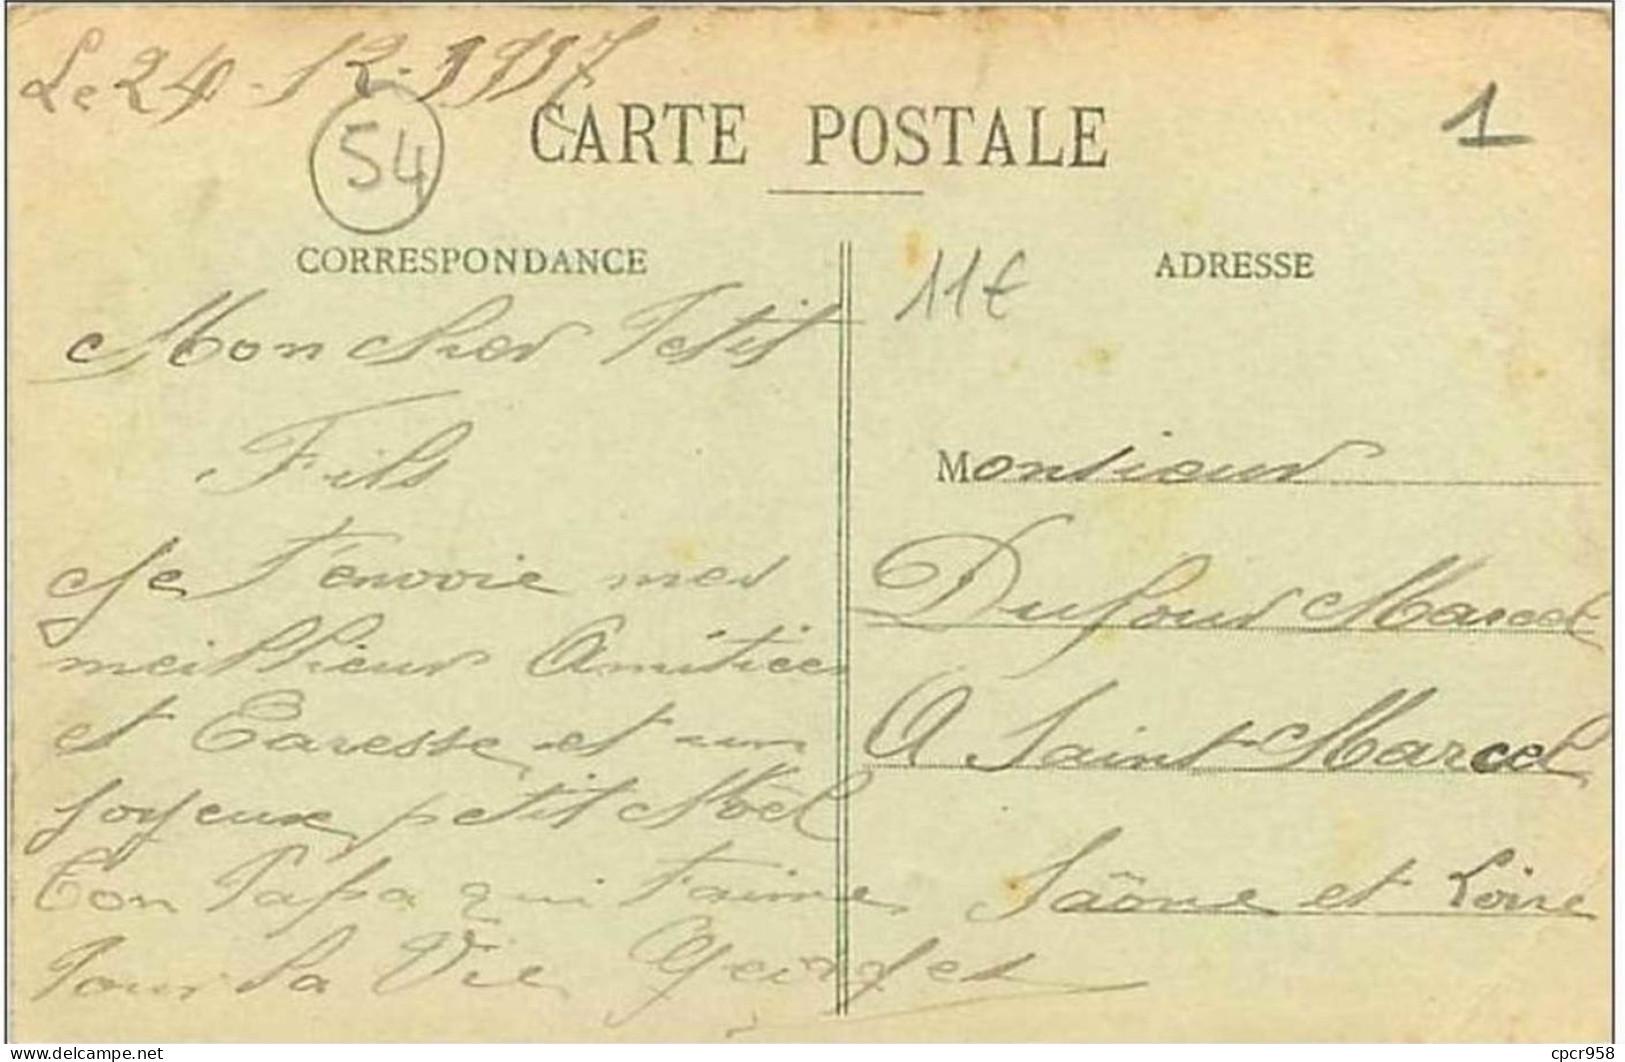 Le 24-12-1917
54
CARTE POSTALE
1
CORRESPONDANCE
Mon cher Petit
Fils
Je t'envoie mes
meillieur Amitiées
et Caresse et un
joyeux petit Noël
Ton Papa qui t'aime
Pour la Vie Georges
11€
ADRESSE
Monsieur
Dufour Marcel
A Saint Marcel
Saône et Loire
delcampe.net
cpcr958